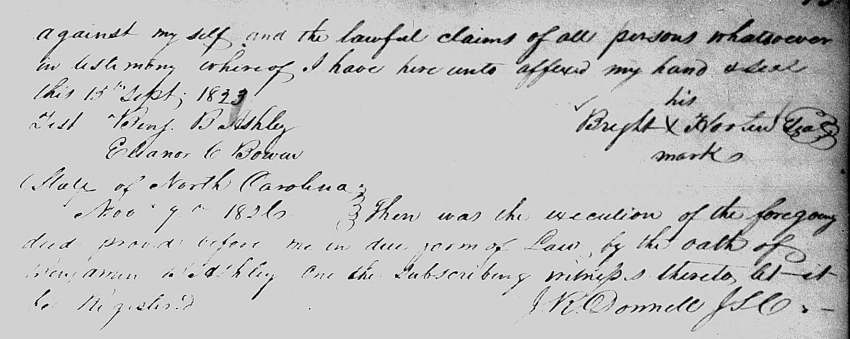 against my self and the lawful claims of all persons whatsoever
in testimony whereof I have here unto affixed my hand & seal
this 15th Sept; 1823
his
Test Benj. B Ashley Bright X Horten Seal
Elianor C Bowen mark
State of North Carolina
Nov 7th Then was the execution of the foregoing
deed proved before me in due form of Law, by the oath of
Benjamin B Ashley one the subscribing witness thereto, let it
be Registerd J R Donnell JSC